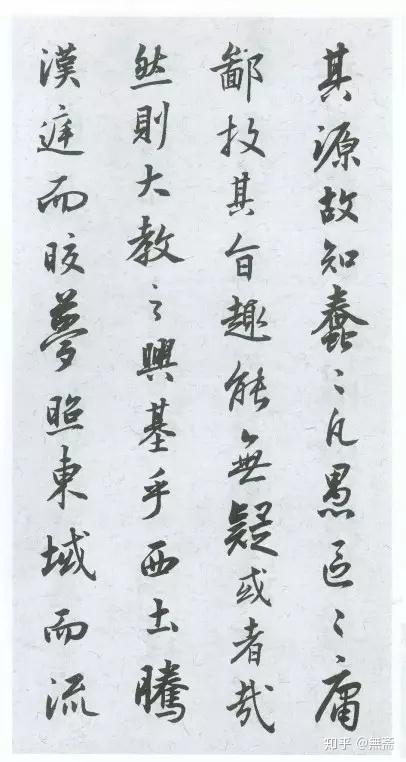 其源故知蠢〻凡愚區〻庸
鄙投其旨趣能無疑或者哉
然則大教之興基乎西土騰
漢庭而皎夢照東域而流
知乎 @無斋